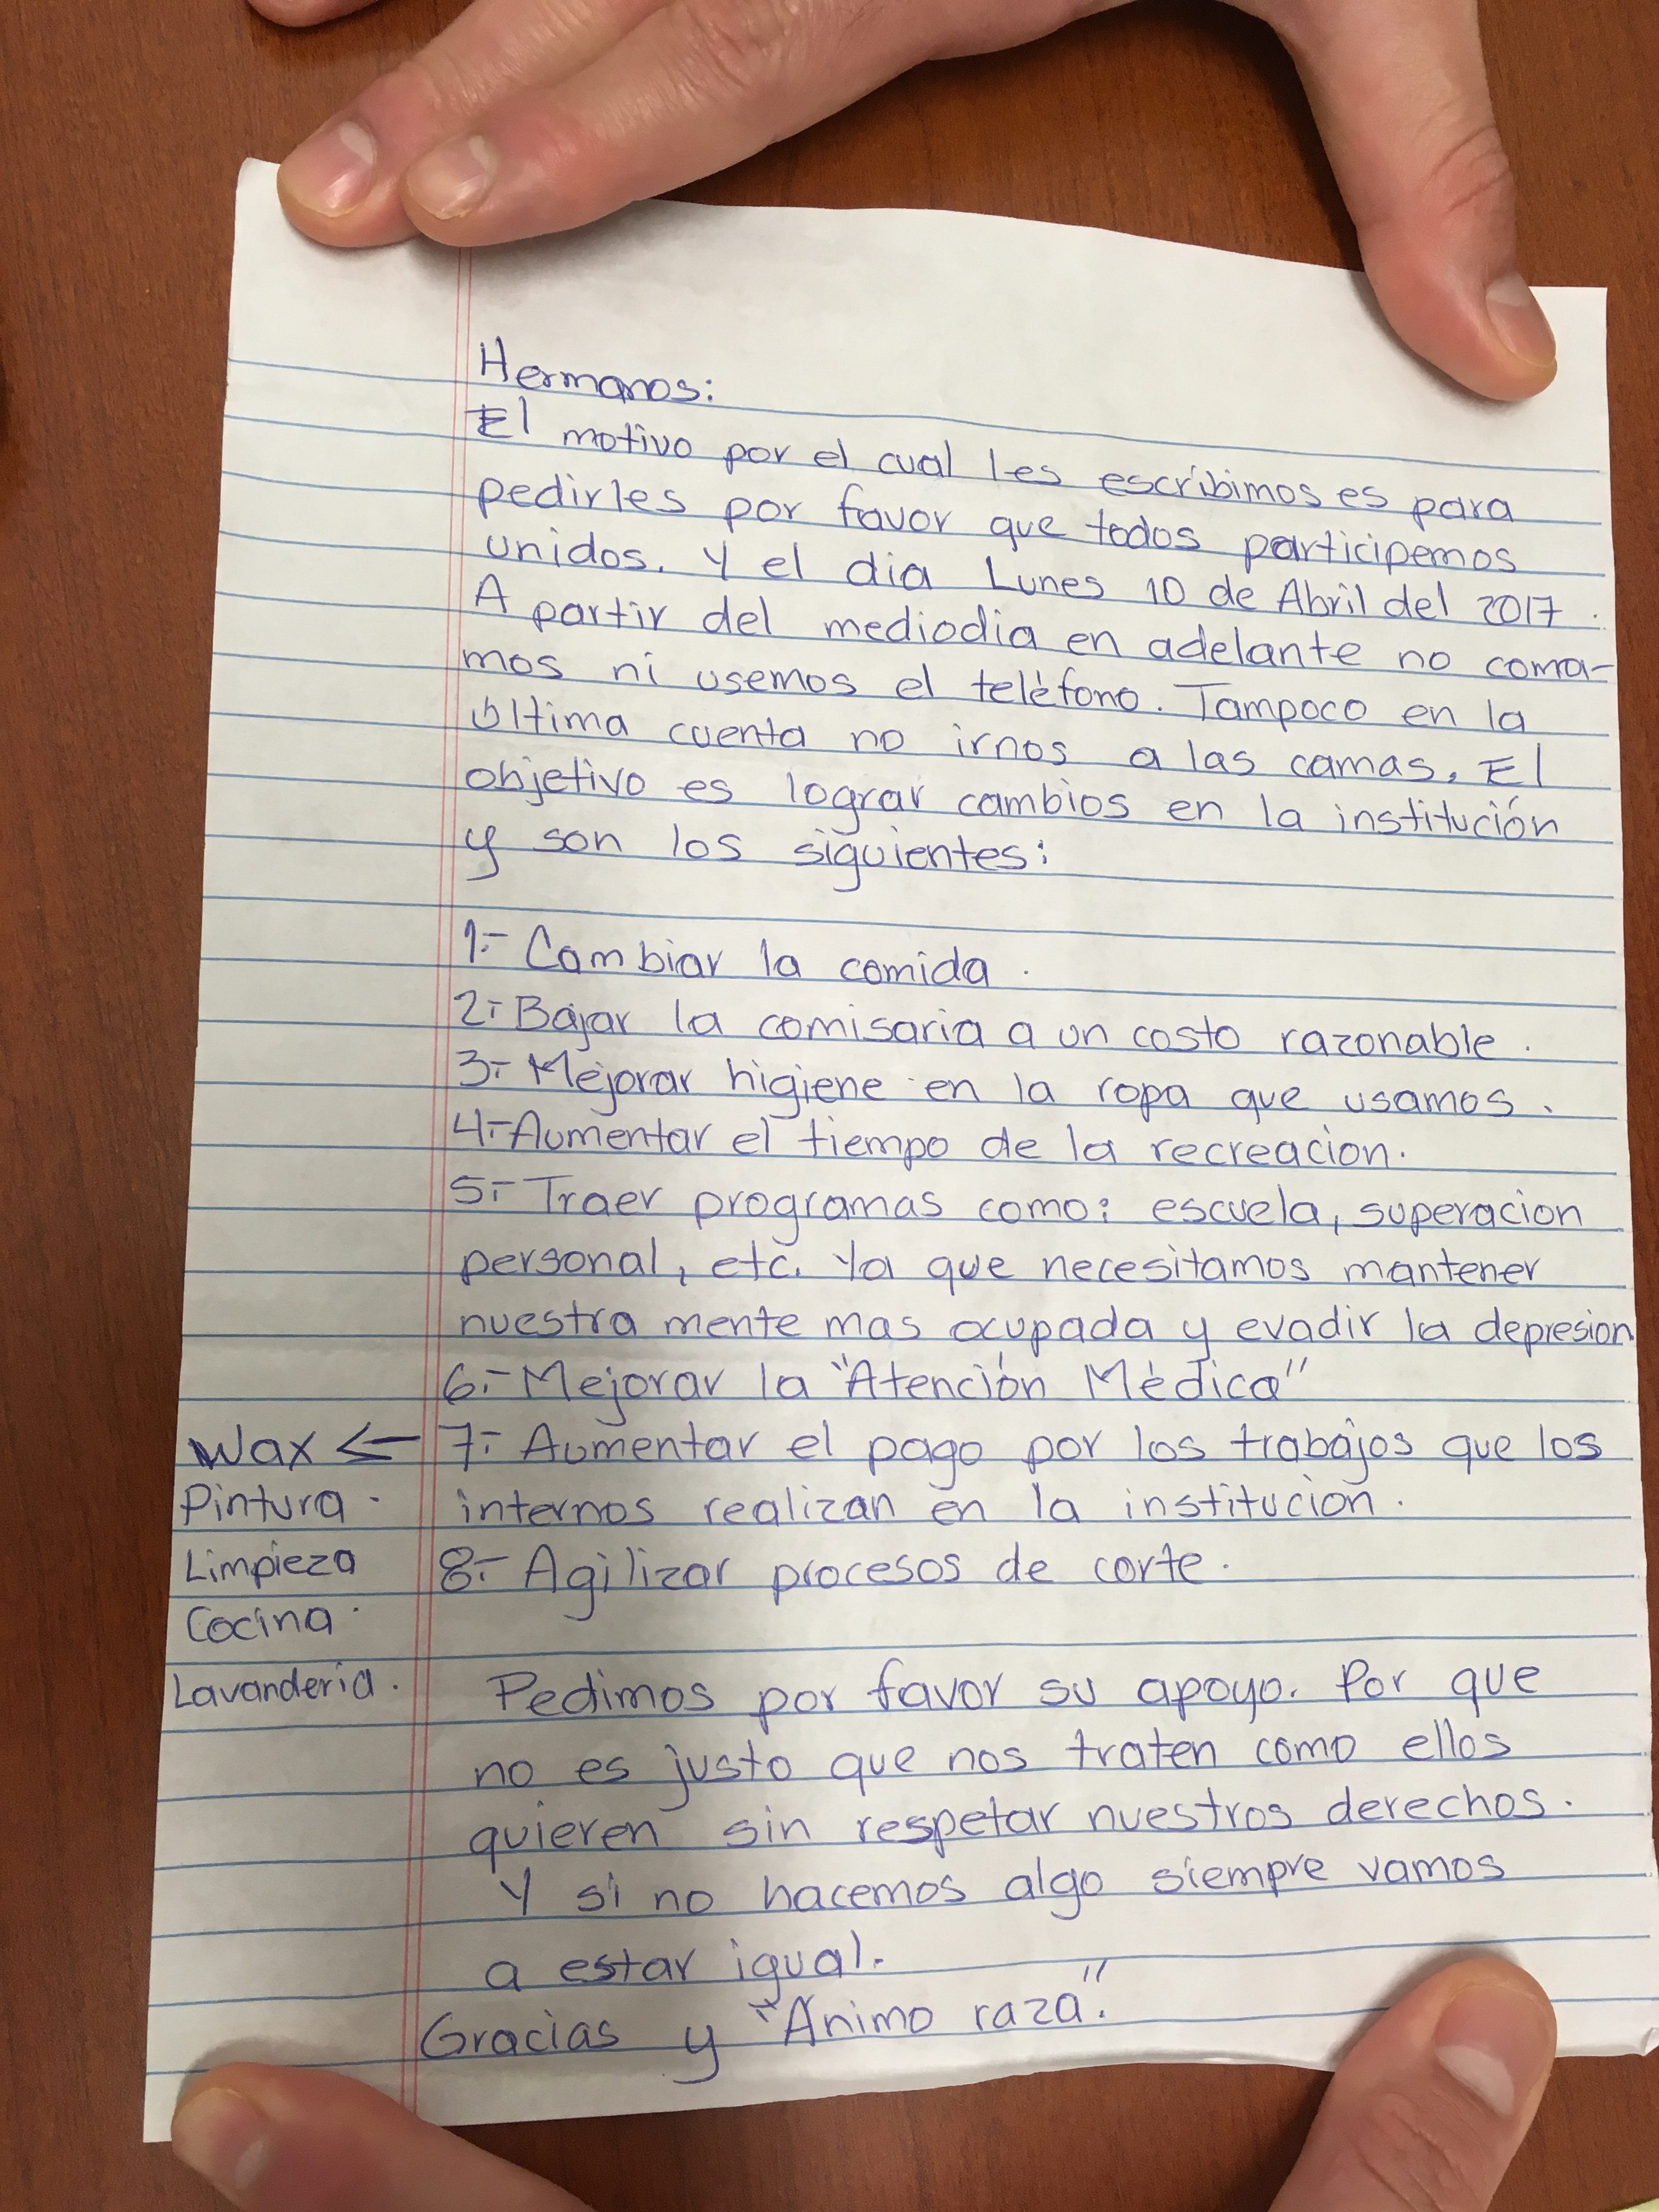 Hermanos:
El motivo por el cual les escribimos es para
pedirles por favor que todos participemos
unidos. Y el dia Lunes 10 de Abril del 2017.
A partir del mediodia en adelante no coma-
mos ni usemos el teléfono. Tampoco en la
última cuenta no irnos a las camas. El
objetivo es lograr cambios en la institución
y son los siguientes:
1.- Cambiar la comida.
2.- Bajar la comisaria a un costo razonable.
3.- Mejorar higiene en la ropa que usamos.
4.- Aumentar el tiempo de la recreacion.
5.- Traer programas como: escuela, superacion
personal, etc. Ya que necesitamos mantener
nuestra mente mas ocupada y evadir la depresion
6.- Mejorar la "Atención Médica"
Wax ← 7.- Aumentar el pago por los trabajos que los
Pintura. internos realizan en la institucion.
Limpieza 8.- Agilizar procesos de corte.
Cocina.
Lavanderia. Pedimos por favor su apoyo. Por que
no es justo que nos traten como ellos
quieren sin respetar nuestros derechos.
Y si no hacemos algo siempre vamos
a estar igual.
Gracias y "Animo raza."